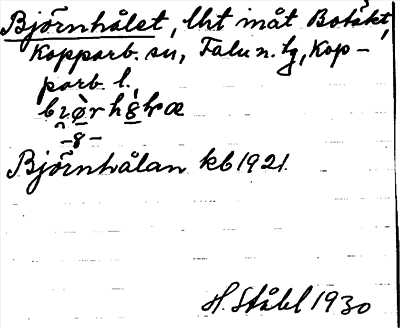 Björnhålet, lht inåt Botäkt,
Kopparb. sn, Falu n. tg, Kop-
parb. l.,
Björnhålan kb 1921.
H. Ståhl 1930